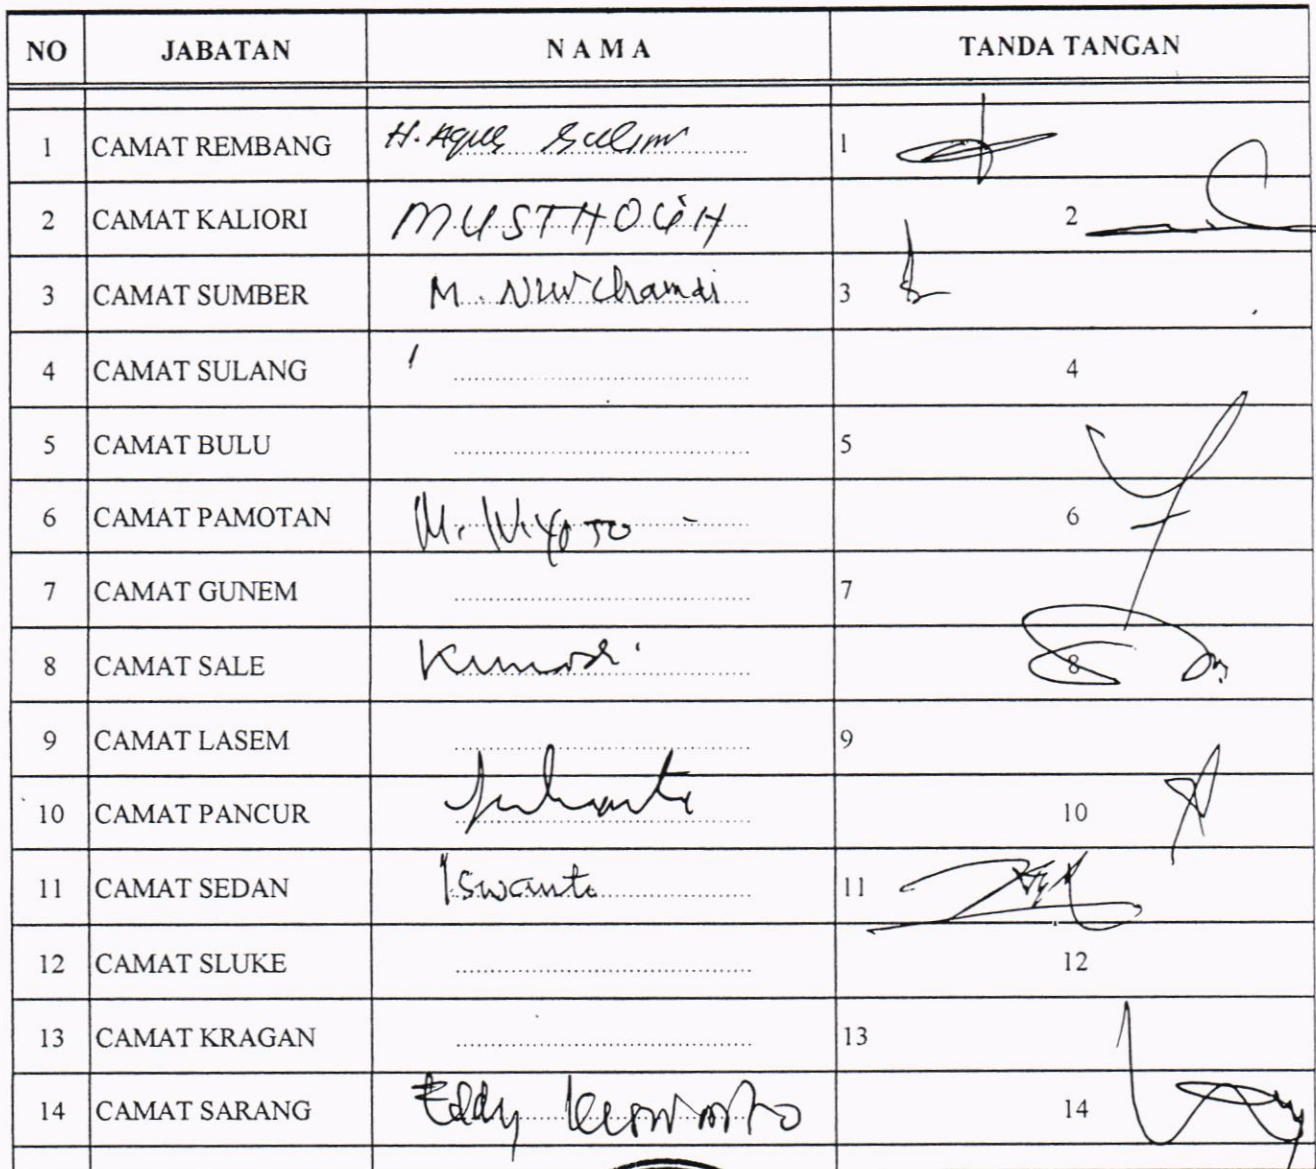 NO JABATAN N A M A TANDA TANGAN
1 CAMAT REMBANG H. Agus Salim 1
2 CAMAT KALIORI MUSTHOLIH 2
3 CAMAT SUMBER M. Nur Chamdi 3
4 CAMAT SULANG 4
5 CAMAT BULU 5
6 CAMAT PAMOTAN M. Wiyoto 6
7 CAMAT GUNEM 7
8 CAMAT SALE 8
9 CAMAT LASEM 9
10 CAMAT PANCUR 10
11 CAMAT SEDAN Iswanto 11
12 CAMAT SLUKE 12
13 CAMAT KRAGAN 13
14 CAMAT SARANG Eddy 14